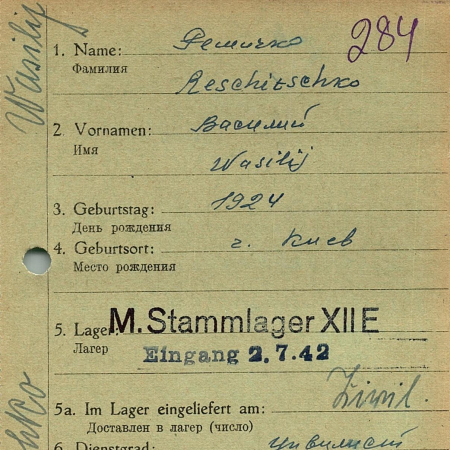 Wasilij
hko
284
1. Name: Решичко
Фамилия
Reschitschko
2. Vornamen: Василий
Имя
Wasilij
3. Geburtstag: 1924
День рождения
4. Geburtsort: г. Киев
Место рождения
5. Lager: M. Stammlager XII E
Лагер
Eingang 2.7.42
5a. Im Lager eingeliefert am: Zivil.
Доставлен в лагер (число)
6. Dienstgrad: